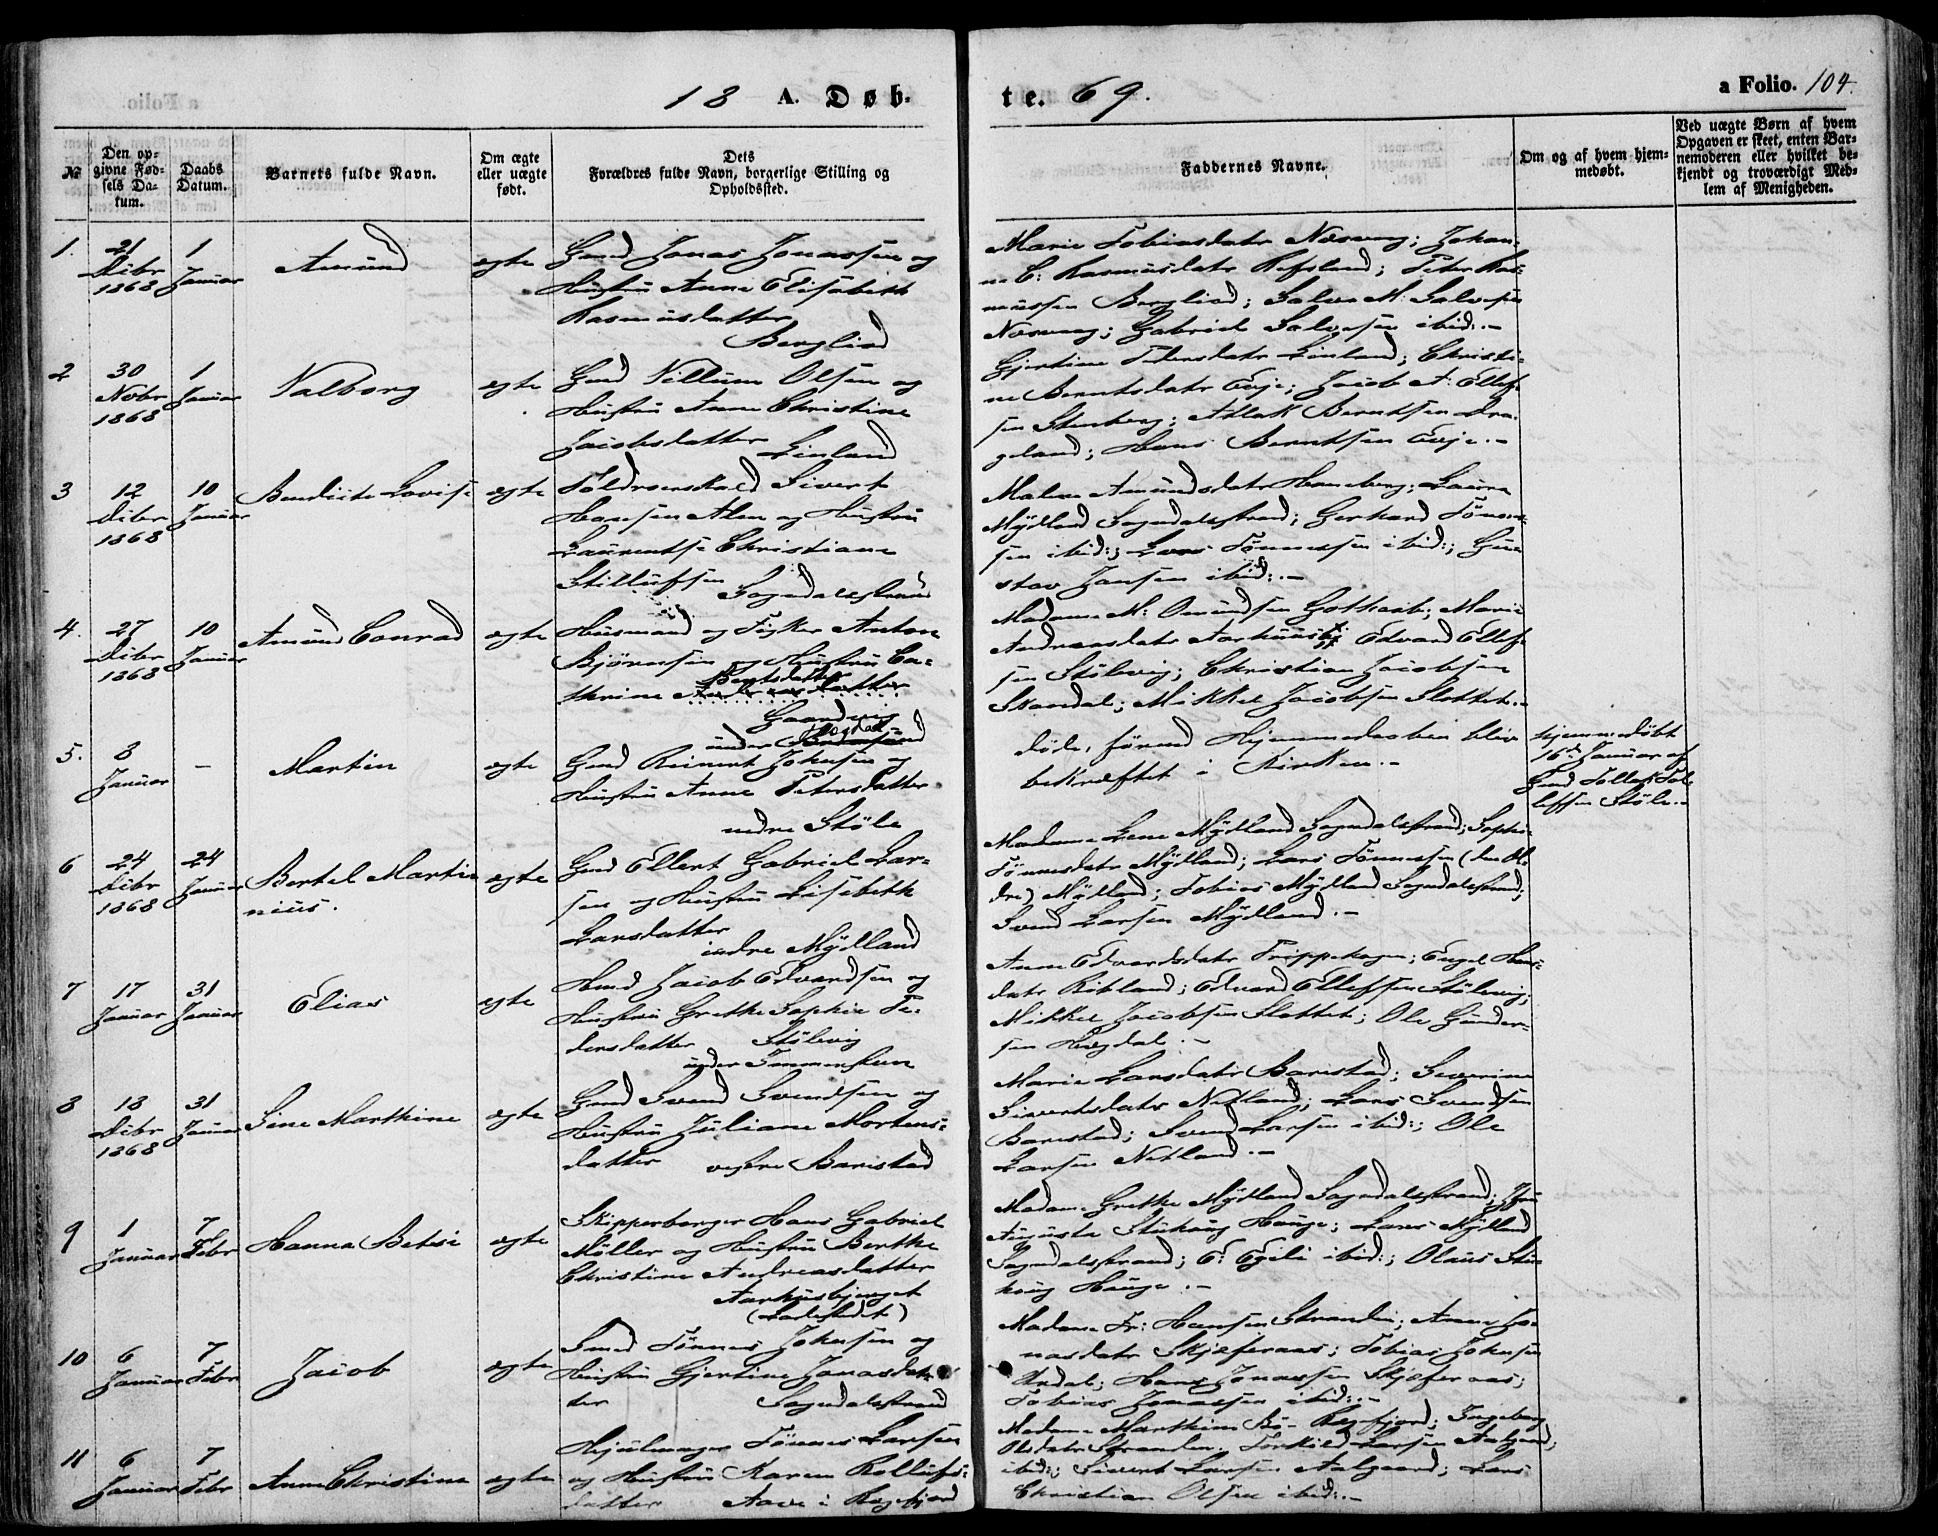 18 A. Døb-
te. 69.
a Folio. 104.
№
Den op-
givne Fød-
sels Da-
tum.
Daabs
Datum.
Barnets fulde Navn.
Om ægte
eller uægte
født.
Dets
Forældres fulde Navn, borgerlige Stilling og
Opholdssted.
Faddernes Navne.
Om og af hvem hjem-
medøbt.
Ved uægte Børn af hvem
Opgaven er skeet, enten Bar-
nemoderen eller hvilket be-
kjendt og troværdigt Med-
lem af Menigheden.
1.
21
Dcbr
1868
1
Januar
Amund
ægte
Gmd Jonas Jonassen og
Hustru Anne Elisabeth
Rasmusdatter
Bergliod
Marie Tobiasdatr Næsvog; Johan-
ne C: Rasmusdatr Refsland; Peter Ras-
mussen Bergliod; Salve M: Salvesen
Næsvog; Gabriel Salvesen ibid:.-
2
30
Nobr
1868
1
Januar
Valborg
ægte
Gmd Villum Olsen og
Hustru Anne Christine
Jacobsdatter Linland
Gjertine Pedersdatr Linland; Christi-
ne Berntsdatr Evje; Jacob A: Ellef-
sen Stenberg; Atlak Berntsen Dra-
geland; Hans Berntsen Evje.-
3
12
Dcbr
1868
10
Januar
Bendicte Lovise
ægte
Toldroerskarl Sivert
Hansen Alen og Hustru
Laurentse Christiane
Stillufsen Sogndalsstrand
Malene Amundsdatr Haneberg; Laura
Mydland Sogndalsstrand; Gerhard Tønnes-
sen ibid:; Lars Tønnessen ibid:; Gu-
stav Jansen ibid:.-
4.
27
Dcbr
1868
10
Januar
Amund Conrad
ægte
Husmand og Fisker Anton
Bjørnsen og Hustru Ca-
thrine Andreasdatter
Berntsdatter
Gaardvig
under
Madame M: Omundsen Gothaab; Marie
Andreasdatr Aarhuus; Edvard Ellef-
sen Stølevig; Christian Jacobsen
Skardal; Mikkel Jacobsen Slottet.-
5.
8
Januar
-
Martin
ægte
Gmd Reinert Johnsen og
Hustru Anne Petersdatter
nedre Støle
døde, førend Hjemmedaaben blev
bekræftet i Kirken.-
hjemmedøbt
16de Januar af
Gmd Tollak Tol-
lefsen Støle.-
6
24
Dcbr
1868
24
Januar
Bertel Marti-
nius.
ægte
Gmd Ellert Gabriel Lar-
sen og Hustru Lisebeth
Larsdatter
indre Mydland
Madame Lene Mydland Sogndalsstrand; Sophi-
Tønnesdatr Mydland; Lars Tønnessen (den Æl-
dre) Mydland; Tobias Mydland Sogndalsstrand;
Svend Larsen Mydland.-
7
17
Januar
31
Januar
Elias
ægte
Hmd Jacob Edvardsen og
Hustru Grethe Sophie Pe-
dersdatter Stølevig
under Immerstein
Anne Edvardsdatr Trippehagen; Engel Hans-
datr Ribland; Edvard Ellefsen Stølevig;
Mikkel Jacobsen Slottet; Ole Gunder-
sen Hegdal.-
8
18
Dcbr
1868
31
Januar
Sine Marthine
ægte
Gmd Svend Svendsen og
Hustru Juliane Mortens-
datter vestre Barstad
Marie Larsdatr Barstad; Severine
Sivertsdatr Netland; Lars Svendsen
Barstad; Svend Larsen ibid:; Ole
Larsen Netland.-
9
1
Januar
7
Febr
Hanna Betsi
ægte
Skipperborger Hans Gabriel
Møller og Hustru Berthe
Christine Andreasdatter
Aarhusbjerget
(Ladestedet)
Madame Grethe Mydland Sogndalsstrand; Jfru
Augusta Stuhoug Hauge; Lars Mydland
Sogndalsstrand; E: Egeli ibid:; Olaus Stu-
houg Hauge.-
10
6
Januar
7
Febr
Jacob
ægte
Smed Tønnes Johnsen og
Hustru Gjertine Jonasdat-
ter Sogndalsstrand
Madame Fr: Hansen Stranden; Anne Jo-
nasdatr Skjeferaas; Tobias Johnsen
Årdal; Hans Jonassen Skjeferaas;
Tobias Jonassen ibid:.-
11
6
Januar
7
Febr
Anne Christine
ægte
Hjulmager Tønnes Larsen
og Hustru Karen Rollufs-
datter Aave i Regefjord
Madame Marthine Bø- Regefjord; Ingeborg
Olsdatr Stranden; Torkild Larsen Aalgaard;
ibid:; Sivert Larsen Aalgaard; Lars
Christian Olsen ibid:.-